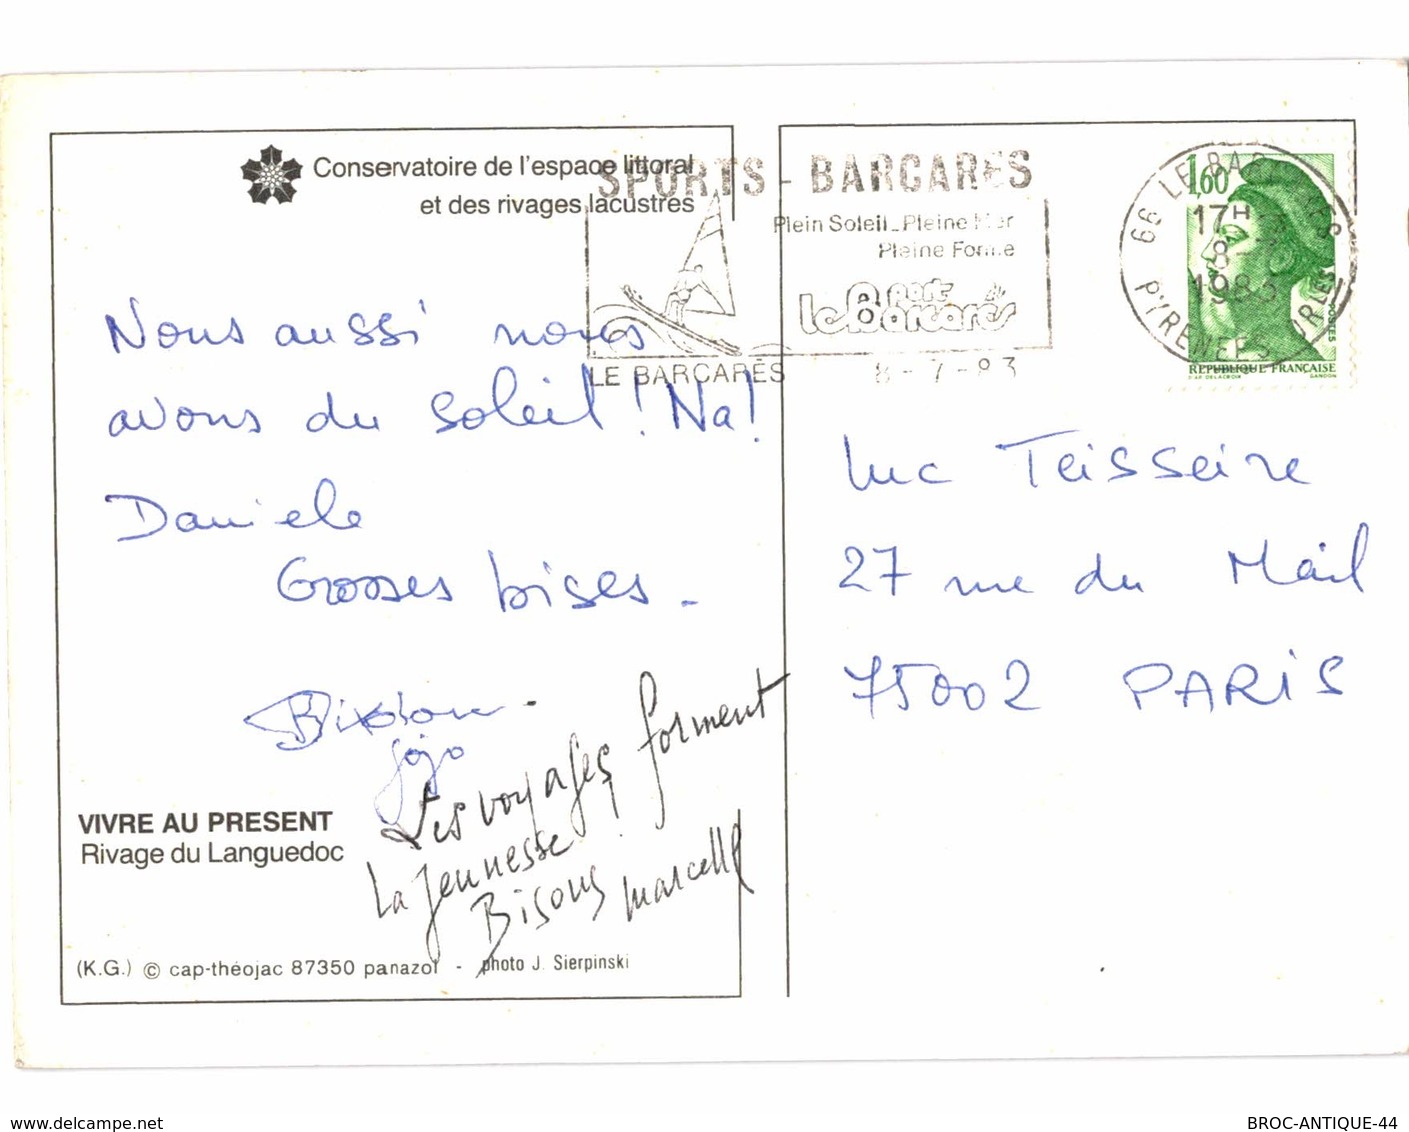 Conservatoire de l'espace littoral
et des rivages lacustres
SPORTS - BARCARES
Plein Soleil_Pleine Mer
Pleine Forme
le port Barcarès
LE BARCARÈS
8-7-83
1,60
66 LE BARCARES
17H
8-7
1983
PYRENEES ORIENTALES
REPUBLIQUE FRANÇAISE
D'AP. DELACROIX GANDON
Nous aussi nous
avons du soleil! Na!
Daniele
Grosses bises -
Jojo
Les voyages forment
la jeunesse!
Bisous Marcelle
Luc Teisseire
27 rue du Mail
75002 PARIS
VIVRE AU PRESENT
Rivage du Languedoc
(K.G.) © cap-théojac 87350 panazol - photo J. Sierpinski
www.delcampe.net
BROC-ANTIQUE-44